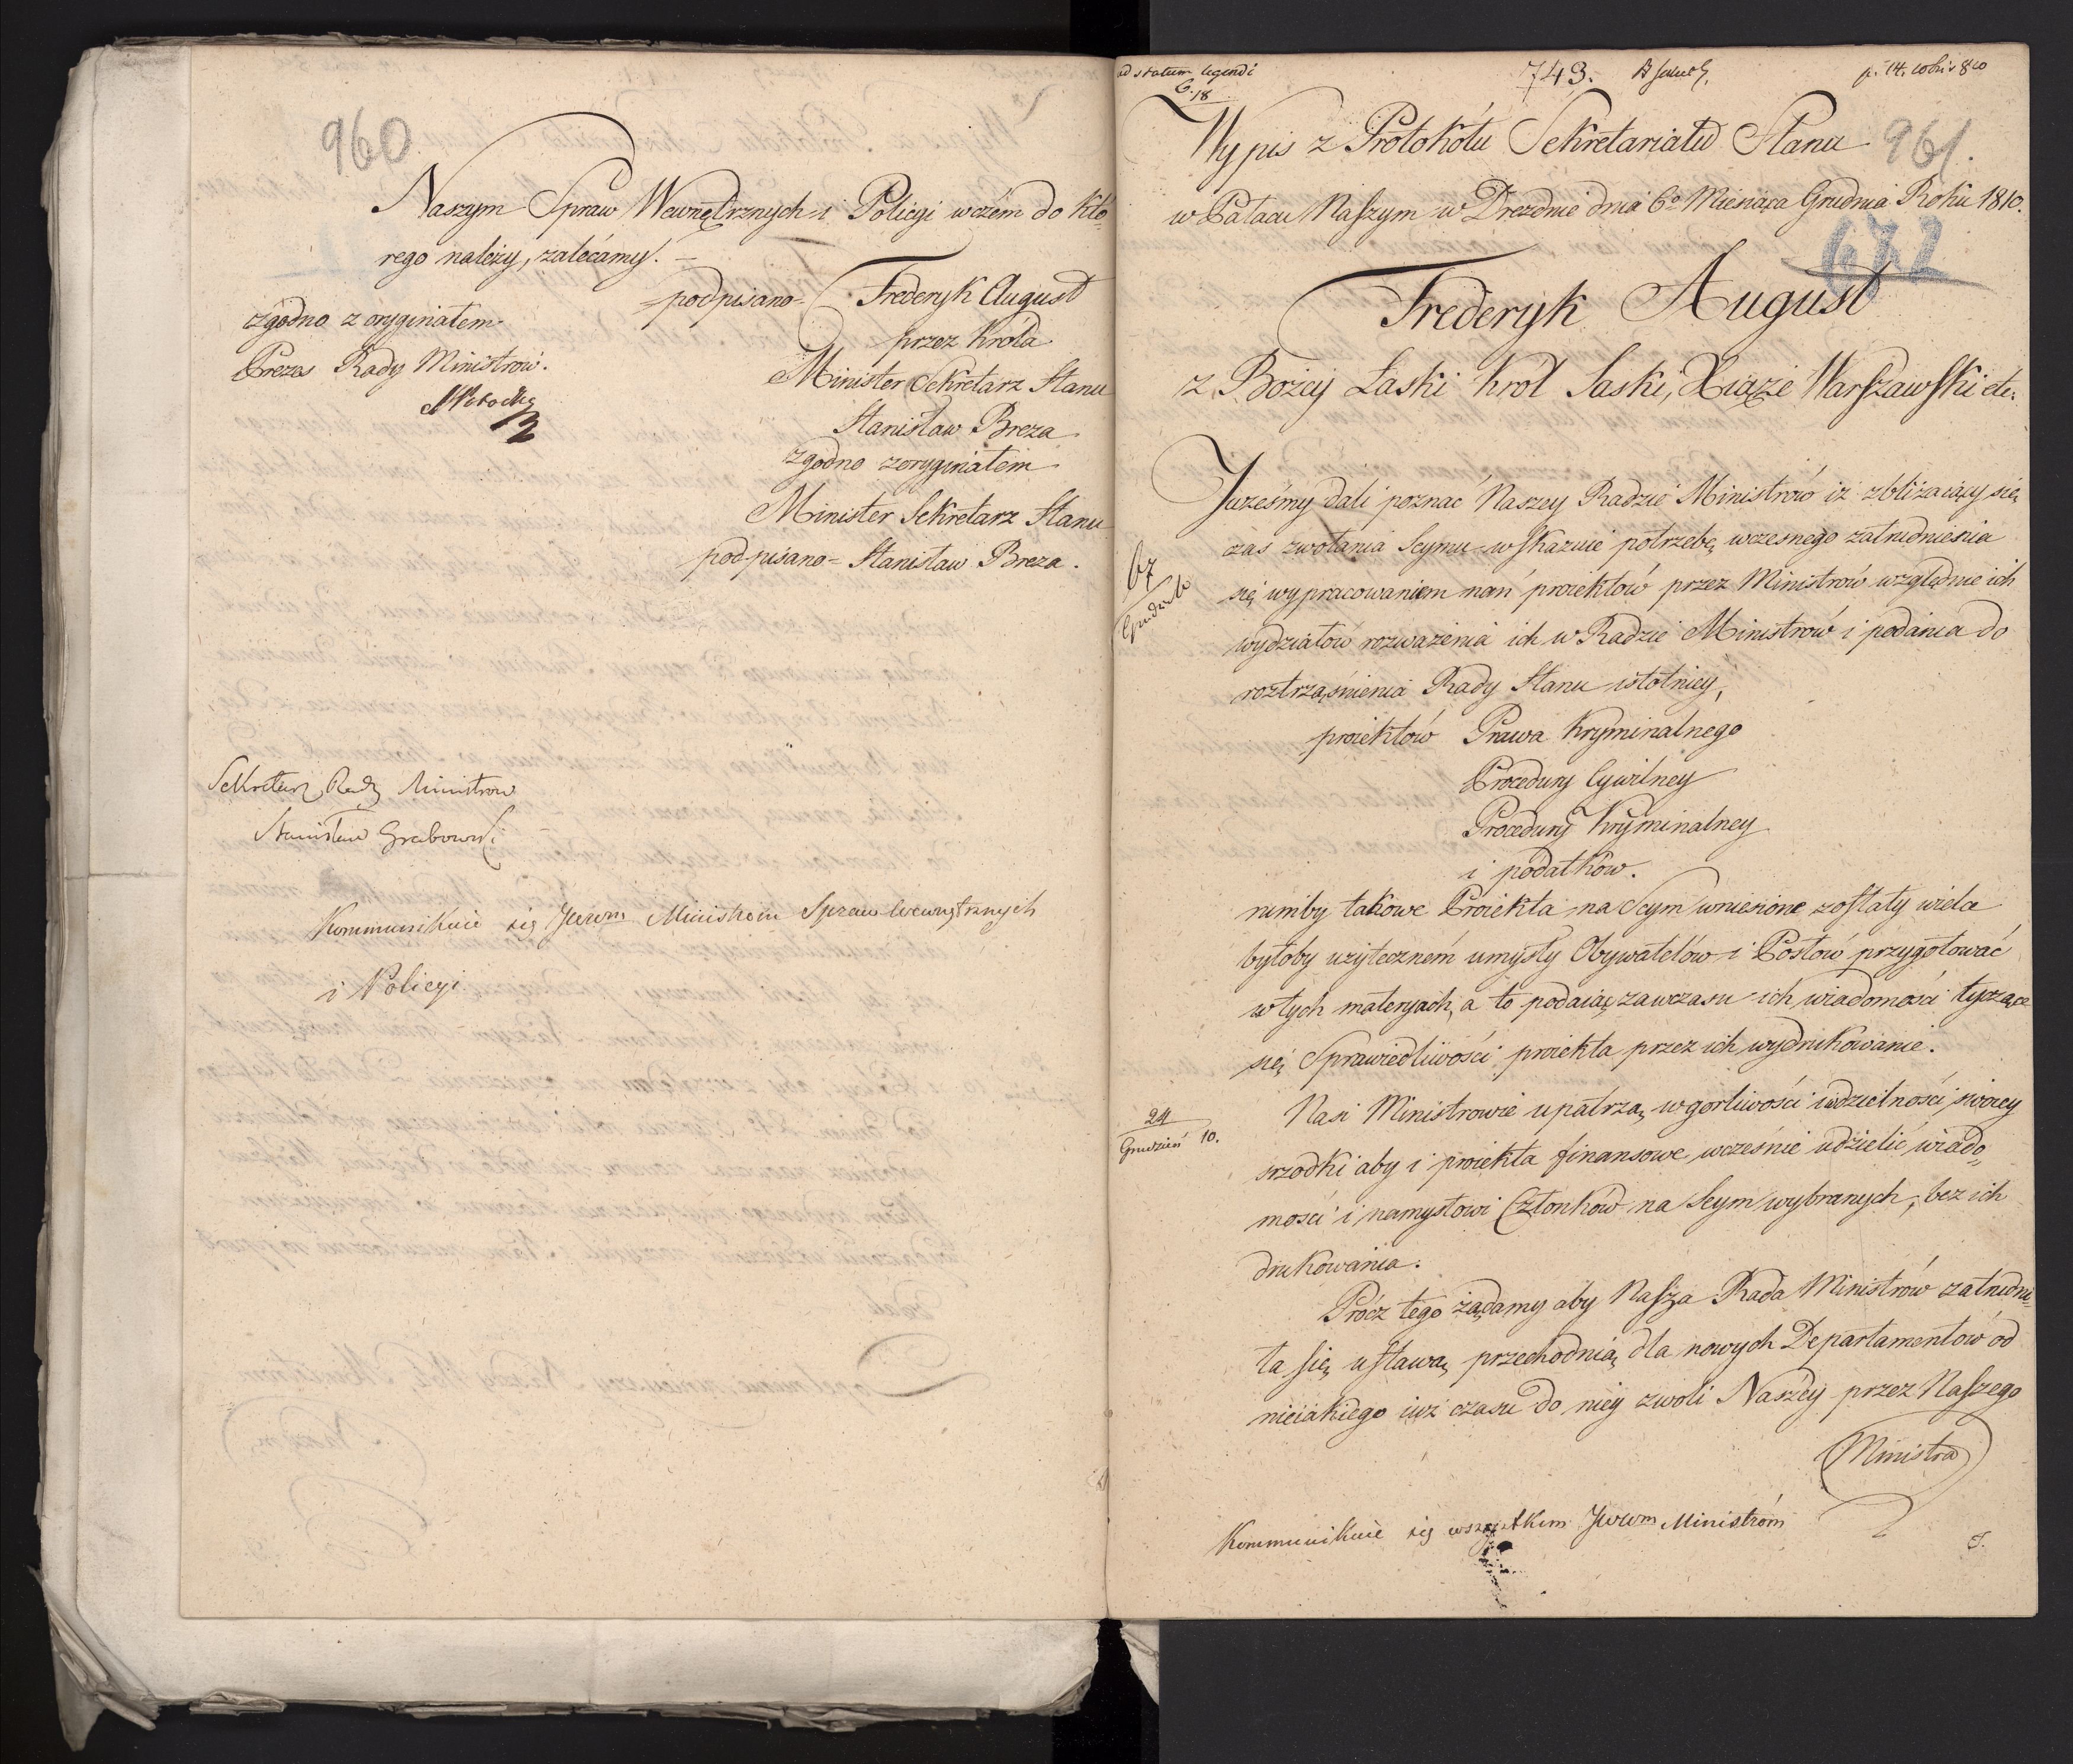 960
Naszym Spraw Wewnętrznych i Policyi wczém do któ=
rego należy, zalécamy. —
podpisano = Frederyk August
przez Króla
Minister Sekretarz Stanu
Stanisław Breza
zgodno z oryginałem
Minister Sekretarz Stanu
podpisano = Stanisław Breza.
zgodno z oryginałem
Prezes Rady Ministrów.
Sekretarz Rady Ministrow
Stanisław Grabowski
Kommunikuie się JWWm Ministrom Spraw Wewnętrznych
i Policyi
ad statum legendi
6.18
743.
p. 14. Xbris 810
Wypis z Protokółu Sekretariatu Stanu
961.
w Pałacu Naszym w Dreznie dnia 6º Miesiąca Grudnia Roku 1810.
672
Frederyk August
z Bożey Łaski Król Saski, Xiąże Warszawski etc.
Jużeśmy dali poznać Naszey Radzie Ministrów iż zbliżaiący się
czas zwołania Seymu wskazuie potrzebę wczesnego zatrudnienia
się wypracowaniem nań proiektów przez Ministrów względnie ich
wydziałów rozważenia ich w Radzie Ministrów i podania do
roztrząśnienia Rady Stanu istotniey,
proiektów Prawa Kryminalnego
Procedury Cywilney
Procedury Kryminalney
i podatków.
nimby takowe Proiekta na Seym wniesione zostały wielce
byłoby użyteczném umysły Obywatelów i Posłów przygotować
w tych materyach, a to podaiąc zawczasu ich wiadomości tyczące
się Sprawiedliwości proiekta przez ich wydrukowanie.
24
Grudzień 10.
Nasi Ministrowie upatrzą w gorliwości i dzielności swoiey
srzodki aby i proiekta finansowe wcześnie udzielić wiado=
mości i namysłowi Członków na Seym wybranych, bez ich
drukowania.
Prócz tego żądamy aby Nasza Rada Ministrów zatrudni=
ła się ustawą przechodnią dla nowych Departamentów od
nieiakiego iuż czasu do niey z woli Naszey przez Naszego
Ministra
Kommunikuie się wszystkim JWWm Ministróm